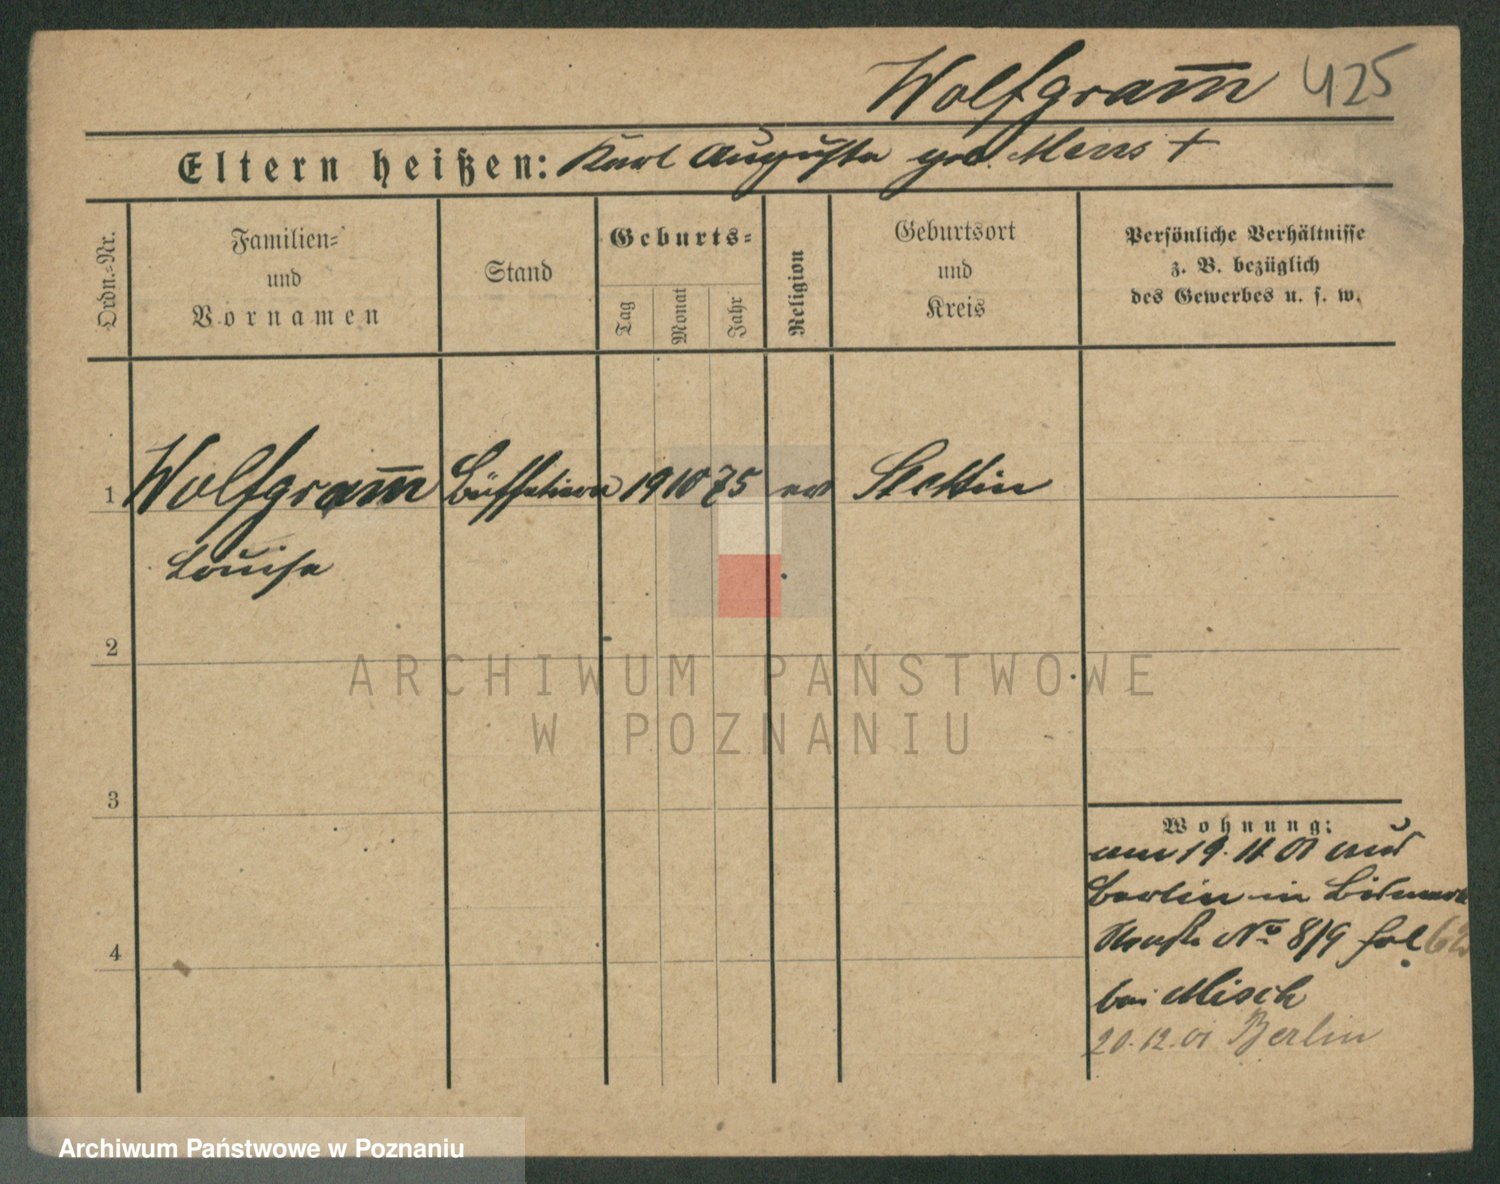 Wolfgram̅ 425
Eltern heißen: Karl Auguste geb. Mens +
Ordn.-Nr.
Familien-
und
Vornamen
Stand
Geburts-
Tag
Monat
Jahr
Religion
Geburtsort
und
Kreis
Persönliche Verhältnisse
z. B. bezüglich
des Gewerbes u. s. w.
1 Wolfgram̅ Büffetiere 19 10 75 ev Stettin
Louise
2
3
4
Wohnung:
am 19. 11 01 aus
Berlin in Bismark
Straße No 8/9
bei Misch
20.12.01 Berlin
ARCHIWUM PAŃSTWOWE
W POZNANIU
Archiwum Państwowe w Poznaniu